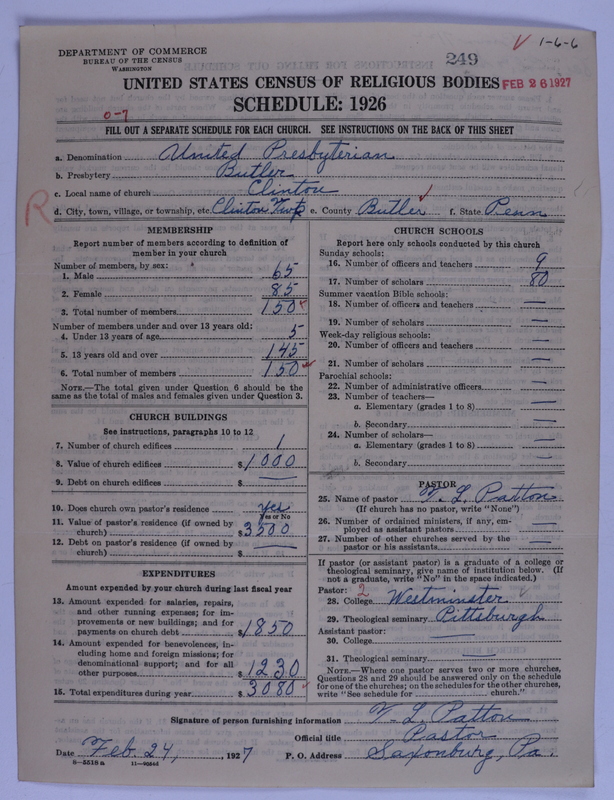 DEPARTMENT OF COMMERCE
BUREAU OF THE CENSUS
WASHINGTON
249
1-6-6
UNITED STATES CENSUS OF RELIGIOUS BODIES
FEB 26 1927
SCHEDULE: 1926
0-7
FILL OUT A SEPARATE SCHEDULE FOR EACH CHURCH. SEE INSTRUCTIONS ON THE BACK OF THIS SHEET
a. Denomination United Presbyterian
b. Presbytery Butler
c. Local name of church Clinton
R
d. City, town, village, or township, etc. Clinton Twp. e. County Butler f. State Penn
MEMBERSHIP
Report number of members according to definition of
member in your church
Number of members, by sex:
1. Male 65
2. Female 85
3. Total number of members 150
Number of members under and over 13 years old:
4. Under 13 years of age 5
5. 13 years old and over 145
6. Total number of members 150
NOTE.—The total given under Question 6 should be the
same as the total of males and females given under Question 3.
CHURCH BUILDINGS
See instructions, paragraphs 10 to 12
7. Number of church edifices 1
8. Value of church edifices $1000
9. Debt on church edifices $ —
10. Does church own pastor's residence Yes
Yes or No
11. Value of pastor's residence (if owned by
church) $3500
12. Debt on pastor's residence (if owned by
church) $ —
EXPENDITURES
Amount expended by your church during last fiscal year
13. Amount expended for salaries, repairs,
and other running expenses; for im-
provements or new buildings; and for
payments on church debt $1850
14. Amount expended for benevolences, in-
cluding home and foreign missions; for
denominational support; and for all
other purposes $1230
15. Total expenditures during year $3080
CHURCH SCHOOLS
Report here only schools conducted by this church
Sunday schools:
16. Number of officers and teachers 9
17. Number of scholars 80
Summer vacation Bible schools:
18. Number of officers and teachers —
19. Number of scholars —
Week-day religious schools:
20. Number of officers and teachers —
21. Number of scholars —
Parochial schools:
22. Number of administrative officers —
23. Number of teachers—
a. Elementary (grades 1 to 8) —
b. Secondary —
24. Number of scholars—
a. Elementary (grades 1 to 8) —
b. Secondary —
PASTOR
25. Name of pastor V. L. Patton
(If church has no pastor, write "None")
26. Number of ordained ministers, if any, em-
ployed as assistant pastors —
27. Number of other churches served by the
pastor or his assistants —
If pastor (or assistant pastor) is a graduate of a college or
theological seminary, give name of institution below. (If
not a graduate, write "No" in the space indicated.)
Pastor: 2
28. College Westminster
29. Theological seminary Pittsburgh
Assistant pastor:
30. College —
31. Theological seminary —
NOTE.—Where one pastor serves two or more churches,
Questions 28 and 29 should be answered only on the schedule
for one of the churches; on the schedules for the other churches,
write "See schedule for church."
Signature of person furnishing information V. L. Patton
Official title Pastor
Date Feb. 24, 1927 P. O. Address Saxonburg, Pa.
8—5518 a